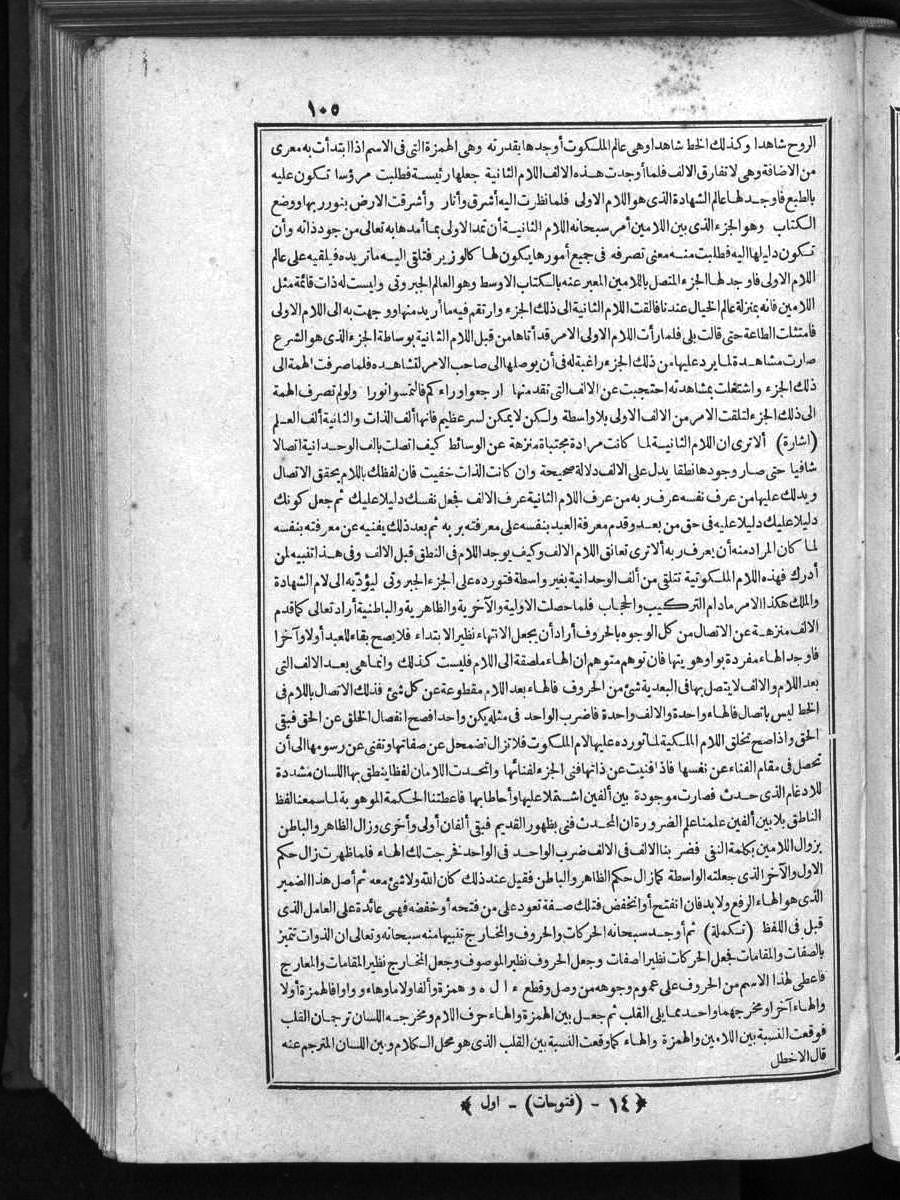 ١٠٥
الروح شاهدا وكذلك الخط شاهدا وهى عالم الملكوت أوجدها بقدرته وهى الهمزة التى فى الاسم اذا ابتدأت به معرى
من الاضافة وهى لا تفارق الالف فلما أوجدت هذه الالف اللام الثانية جعلها رئيسة فطلبت مرؤسا تكون عليه
بالطبع فاوجد لها عالم الشهادة الذى هو اللام الاولى فلما نظرت اليه أشرق وأنار وأشرقت الارض بنور ربها ووضع
الكتاب وهو الجزء الذى بين اللامين أمر سبحانه اللام الثانية أن تمد الاولى بما أمدها به تعالى من جود ذاته وأن
تكون دليلها اليه فطلبت منه معنى تصرفه فى جميع أمورها يكون لها كالوزير فتلقى اليه ما تريده فيلقيه على عالم
اللام الاولى فاوجد لها الجزء المتصل باللامين المعبر عنه بالكتاب الاوسط وهو العالم الجبروتى وليست له ذات قائمة مثل
اللامين فانه بمنزلة عالم الخيال عندنا فالقت اللام الثانية الى ذلك الجزء وارتقم فيه ما أريد منها ووجهت به الى اللام الاولى
فامتثلت الطاعة حتى قالت بلى فلما رأت اللام الاولى الامر قد أتاها من قبل اللام الثانية بوساطة الجزء الذى هو الشرع
صارت مشاهدة لما يرد عليها من ذلك الجزء راغبة له فى أن يوصلها الى صاحب الامر لتشاهده فلما صرفت الهمة الى
ذلك الجزء واشتغلت بمشاهدته احتجبت عن الالف التى تقدمتها ارجعوا وراءكم فالتمسوا نورا ولو لم تصرف الهمة
الى ذلك الجزء لتلقت الامر من الالف الاولى بلا واسطة ولكن لا يمكن لسر عظيم فانها ألف الذات والثانية ألف العلم
(اشارة) ألا ترى ان اللام الثانية لما كانت مرادة مجتباة منزهة عن الوسائط كيف اتصلت بالف الوحدانية اتصالا
شافيا حتى صار وجودها نطقا يدل على الالف دلالة صحيحة وان كانت الذات خفيت فان لفظك باللام يحقق الاتصال
ويدلك عليها من عرف نفسه عرف ربه من عرف اللام الثانية عرف الالف فجعل نفسك دليلا عليك ثم جعل كونك
دليلا عليك دليلا عليه فى حق من بعد وقدم معرفة العبد بنفسه على معرفته بربه ثم بعد ذلك يفنيه عن معرفته بنفسه
لما كان المراد منه أن يعرف ربه ألا ترى تعانق اللام الالف وكيف يوجد اللام فى النطق قبل الالف وفى هذا تنبيه لمن
أدرك فهذه اللام الملكوتية تتلقى من ألف الوحدانية بغير واسطة فتورده على الجزء الجبروتى ليؤدّيه الى لام الشهادة
والملك هكذا الامر مادام التركيب والحجاب فلما حصلت الاولية والآخرية والظاهرية والباطنية أراد تعالى كما قدم
الالف منزهة عن الاتصال من كل الوجوه بالحروف أراد أن يجعل الانتهاء نظير الابتداء فلا يصح بقاء للعبد أولا وآخرا
فاوجد الهاء مفردة بواو هويتها فان توهم متوهم ان الهاء ملصقة الى اللام فليست كذلك وانما هى بعد الالف التى
بعد اللام والالف لا يتصل بها فى البعدية شئ من الحروف فالهاء بعد اللام مقطوعة عن كل شئ فذلك الاتصال باللام فى
الخط ليس باتصال فالهاء واحدة والالف واحدة فاضرب الواحد فى مثله يكن واحدا فصح انفصال الخلق عن الحق فبقى
الحق واذا صح تخلق اللام الملكية لما تورده عليها لام الملكوت فلا تزال تضمحل عن صفاتها وتفنى عن رسومها الى أن
تحصل فى مقام الفناء عن نفسها فاذا فنيت عن ذاتها فنى الجزء لفنائها واتحدت اللامان لفظا ينطق بها اللسان مشددة
للادغام الذى حدث فصارت موجودة بين ألفين اشتملا عليها وأحاطا بها فاعطتنا الحكمة الموهوبة لما سمعنا لفظ
الناطق بلا بين ألفين علمنا علم الضرورة ان المحدث فنى بظهور القديم فبقى ألفان أولى وأخرى وزال الظاهر والباطن
بزوال اللامين بكلمة النفى فضربنا الالف فى الالف ضرب الواحد فى الواحد فخرجت لك الهاء فلما ظهرت زال حكم
الاول والآخر الذى جعلته الواسطة كما زال حكم الظاهر والباطن فقيل عند ذلك كان اللّه ولا شئ معه ثم أصل هذا الضمير
الذى هو الهاء الرفع ولا بد فان انفتح أو انخفض فتلك صفة تعود على من فتحه أو خفضه فهى عائدة على العامل الذى
قبل فى اللفظ (تكملة) ثم أوجد سبحانه الحركات والحروف والمخارج تنبيها منه سبحانه وتعالى ان الذوات تتميز
بالصفات والمقامات فجعل الحركات نظير الصفات وجعل الحروف نظير الموصوف وجعل المخارج نظير المقامات والمعارج
فاعطى لهذا الاسم من الحروف على عموم وجوهه من وصل وقطع ء ا ل ه و همزة وألفا ولاما وهاء وواوا فالهمزة أولا
والهاء آخرا ومخرجهما واحد مما يلى القلب ثم جعل بين الهمزة والهاء حرف اللام ومخرجه اللسان ترجمان القلب
فوقعت النسبة بين اللامين والهمزة والهاء كما وقعت النسبة بين القلب الذى هو محل الكلام وبين اللسان المترجم عنه
قال الاخطل
﴿ ١٤ - (فتوحات) - اول ﴾